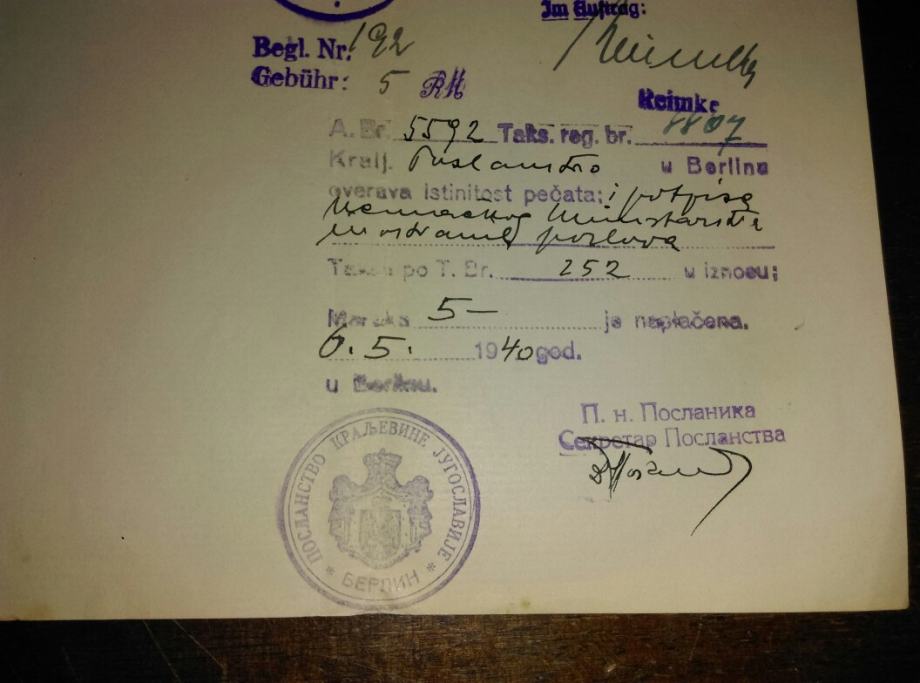 Im Auftrag:
Begl. Nr. 192
Gebühr: 5 RM
Reimke
A. Br. 5592 Taks. reg. br. 8807
Kralj. Poslanstvo u Berlinu
overava istinitost pečata; i potpisa
Nemačkog Ministarstva
inostranih poslova
Taksa po T. Br. 252 u iznosu;
Maraka 5- je naplaćena.
6.5. 1940 god.
u Berlinu.
П. н. Посланика
Секретар Посланства
ПОСЛАНСТВО КРАЉЕВИНЕ ЈУГОСЛАВИЈЕ
* БЕРЛИН *